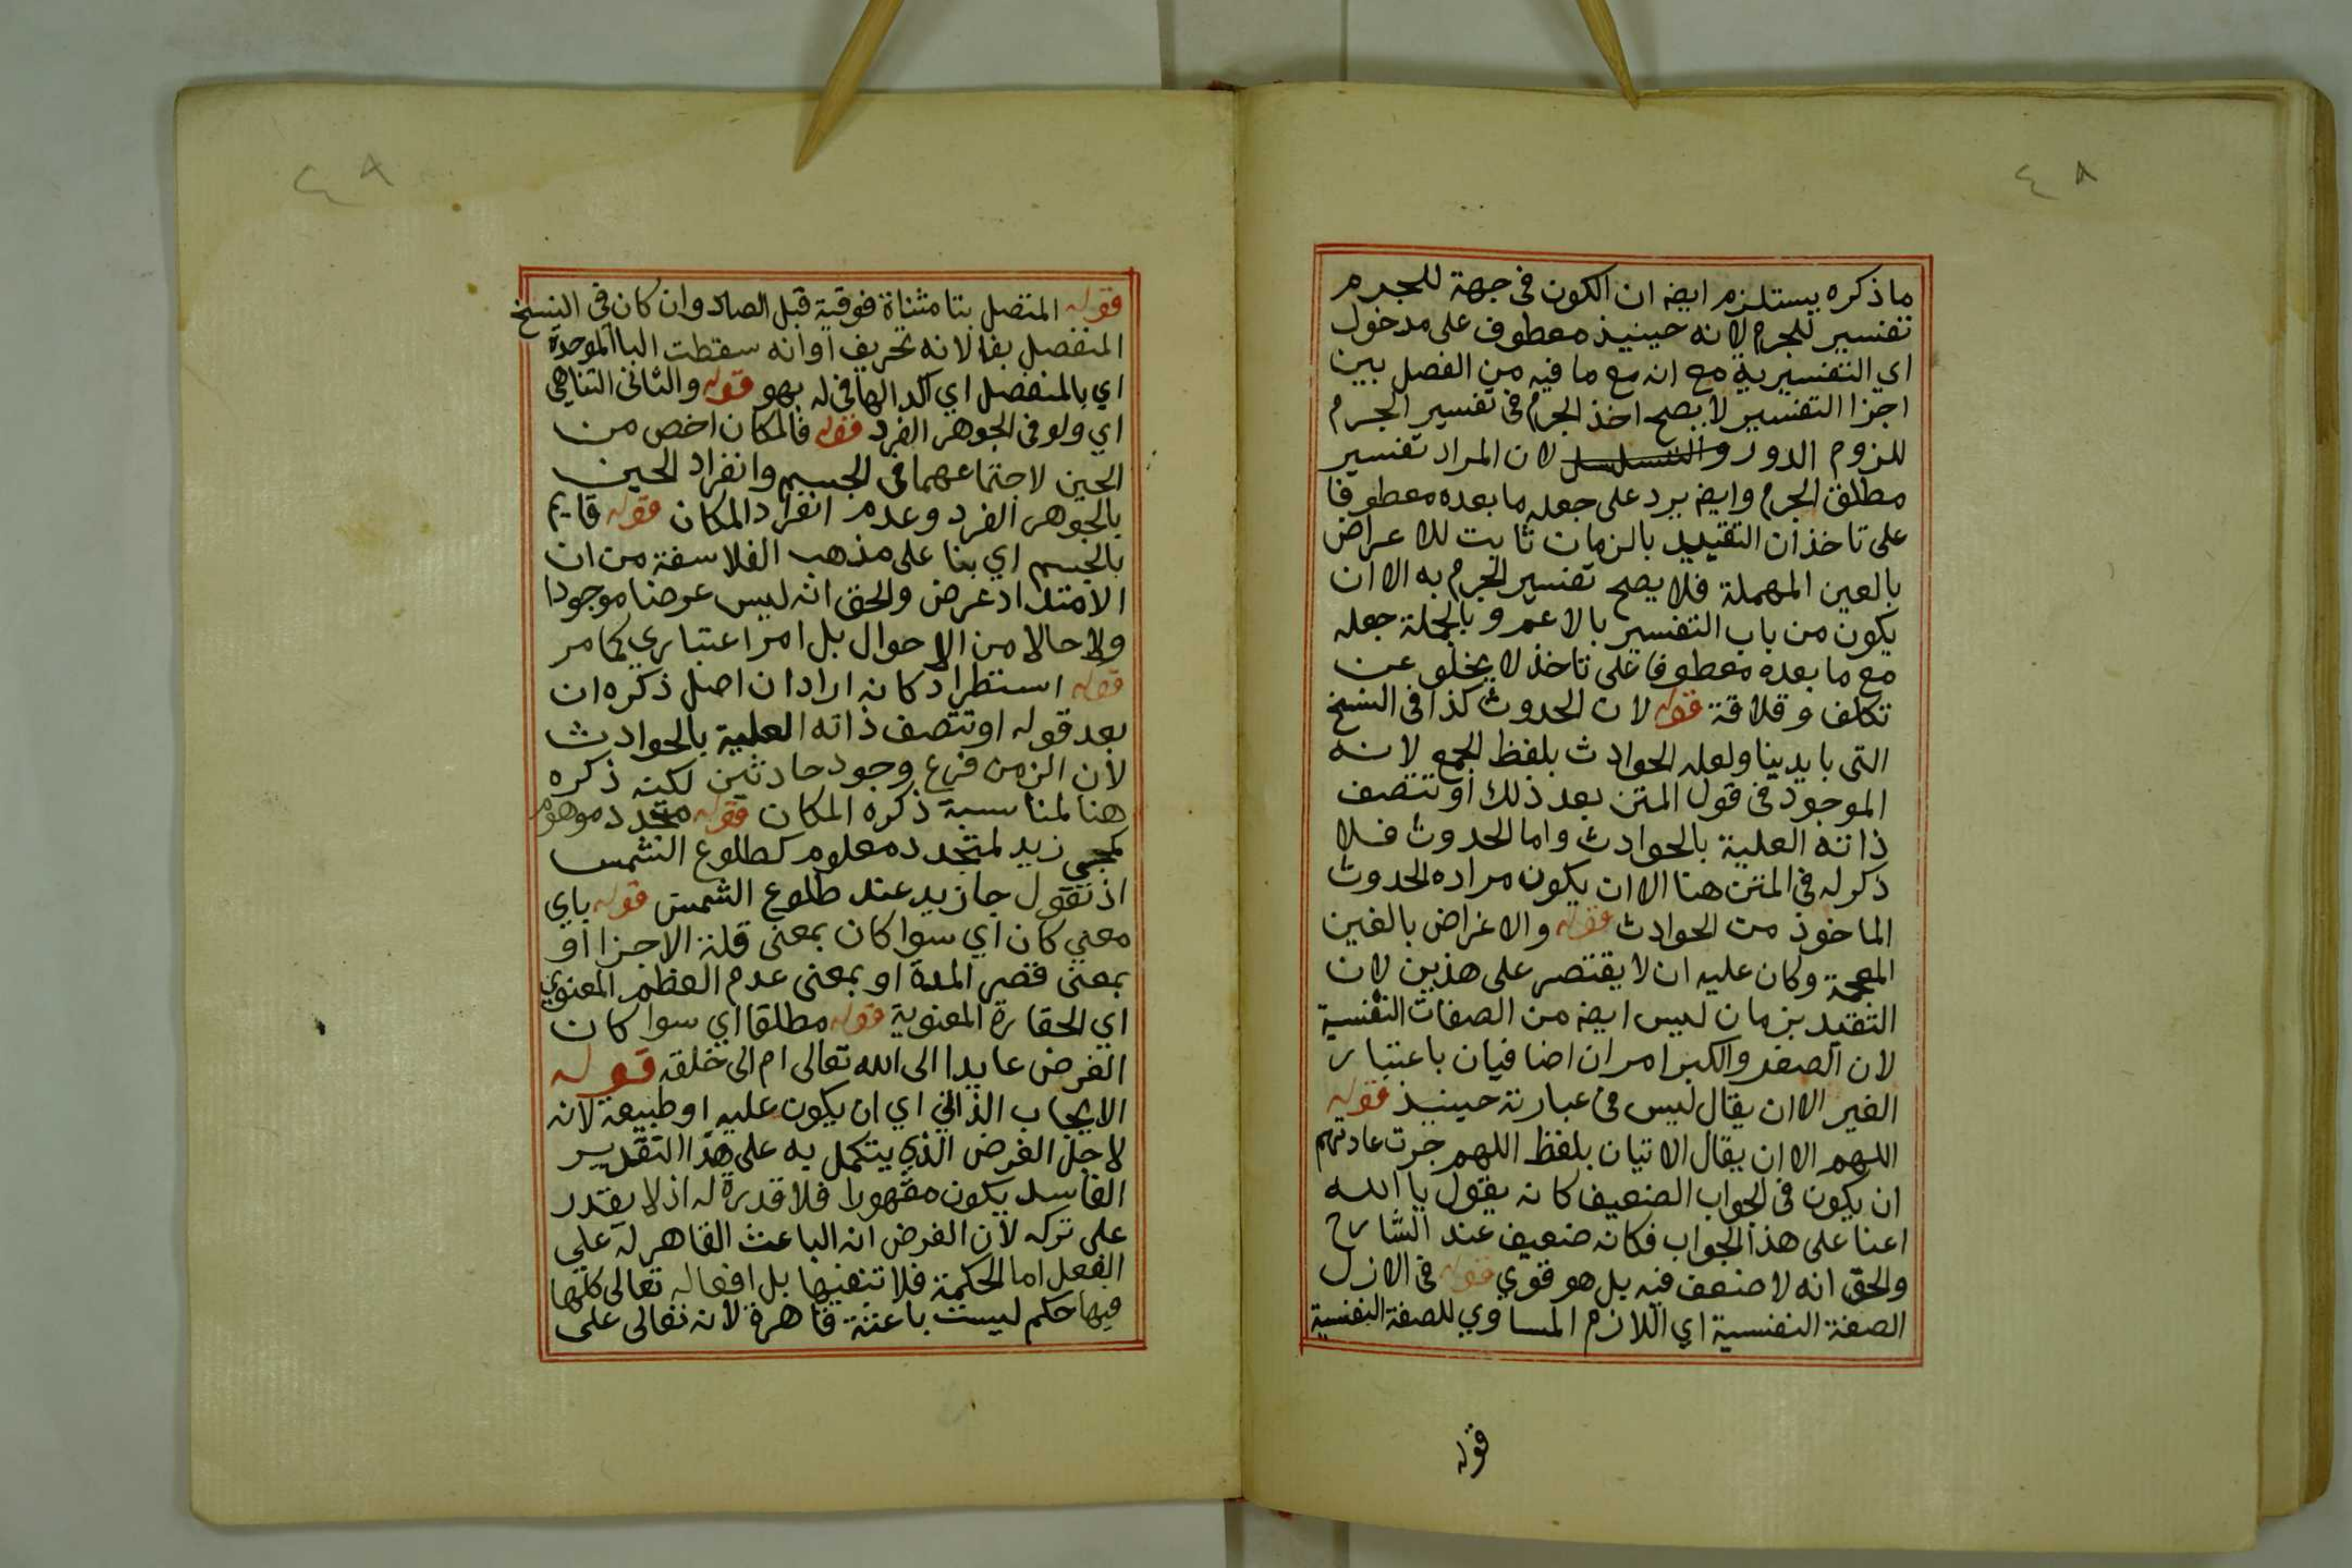 ٤٨
ماذكره يستلزم ايضه ان الكون فى جهة للجرم
تفسير للجرم لانه حينيذ معطوف على مدخول
اي التفسيرية مع انه مع ما فيه من الفصل بين
اجزا التفسير لا يصح اخذ الجرم فى تفسير الجرم
للزوم الدور والتسلسل لان المراد تفسير
مطلق الجرم وايضه يرد على جعله ما بعده معطوفا
على تاخذ ان التقييد بالزمان ثابت للاعراض
بالعين المهملة فلا يصح تفسير الجرم به الا ان
يكون من باب التفسير بالاعم وبالجملة جعله
مع ما بعده معطوفا على تاخذ لا يخلو عن
تكلف وقلاقة قوله لان الحدوث كذا فى النسخ
التى بايدينا ولعله الحوادث بلفظ الجمع لانه
الموجود فى قول المتن بعد ذلك او تتصف
ذاته العلية بالحوادث واما الحدوث فلا
ذكر له فى المتن هنا الا ان يكون مراده الحدوث
الماخوذ من الحوادث قوله والاغراض بالغين
المعجمة وكان عليه ان لا يقتصر على هذين لان
التقيد بزمان ليس ايضه من الصفات النفسية
لان الصغر والكبر امران اضافيان باعتبار
الغير الا ان يقال ليس فى عبارته حينيذ قوله
اللهم الا ان يقال الاتيان بلفظ اللهم جرت عادتهم
ان يكون فى الجواب الضعيف كانه يقول يا الله
اعنا على هذا الجواب فكانه ضعيف عند الشارح
والحق انه لا ضعف فيه بل هو قوي قوله فى الازل
الصفة النفسية اي اللازم المساوي للصفة النفسية
قوله
٤٨
قوله المتصل بتا مثناة فوقية قبل الصاد وان كان فى النسخ
المنفصل بفا لانه تحريف او انه سقطت البا الموحدة
اي بالمنفصل اي الد الها فى له بهو قوله والثانى التناهي
اي ولو فى الجوهر الفرد قوله فالمكان اخص من
الحيز لاجتماعهما فى الجسم وانفراد الحيز
بالجوهر الفرد وعدم انفراد المكان قوله قايم
بالجسم اي بنا على مذهب الفلاسفة من ان
الامتداد عرض والحق انه ليس عرضا موجودا
ولا حالا من الاحوال بل امر اعتباري كما مر
قوله استطراد كانه اراد ان اصل ذكره ان
بعد قوله او تتصف ذاته العلية بالحوادث
لان الزمن فرع وجود حادثين لكنه ذكره
هنا لمناسبة ذكره المكان قوله متجدد موهوم
كمجي زيد لمتجدد معلوم كطلوع الشمس
اذ تقول جا زيد عند طلوع الشمس قوله باي
معني كان اي سوا كان بمعنى قلة الاجزا او
بمعنى قصر المدة او بمعنى عدم العظم المعنوي
اي الحقارة المعنوية قوله مطلقا اي سوا كان
الغرض عايدا الى الله تعالى ام الى خلقه قوله
الايجاب الذاتي اي ان يكون علية او طبيعة لانه
لاجل الغرض الذي يتكمل به على هذا التقدير
الفاسد يكون مقهورا فلا قدرة له اذ لا يقتدر
على تركه لان الفرض انه الباعث القاهر له علي
الفعل اما الحكمة فلا تنفيها بل افعاله تعالى كلها
فيها حكم ليست باعثة قاهرة لانه تعالى على